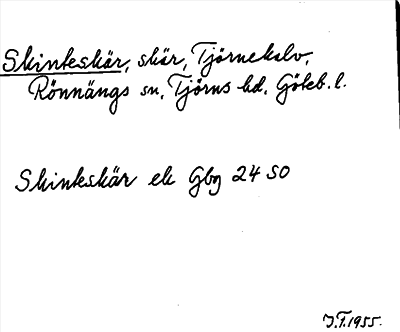 Skinkeskär, skär, Tjörnekalv,
Rönnängs sn, Tjörns hd, Göteb. l.
Skinkeskär ek Gbg 24 SO
J.F. 1955.